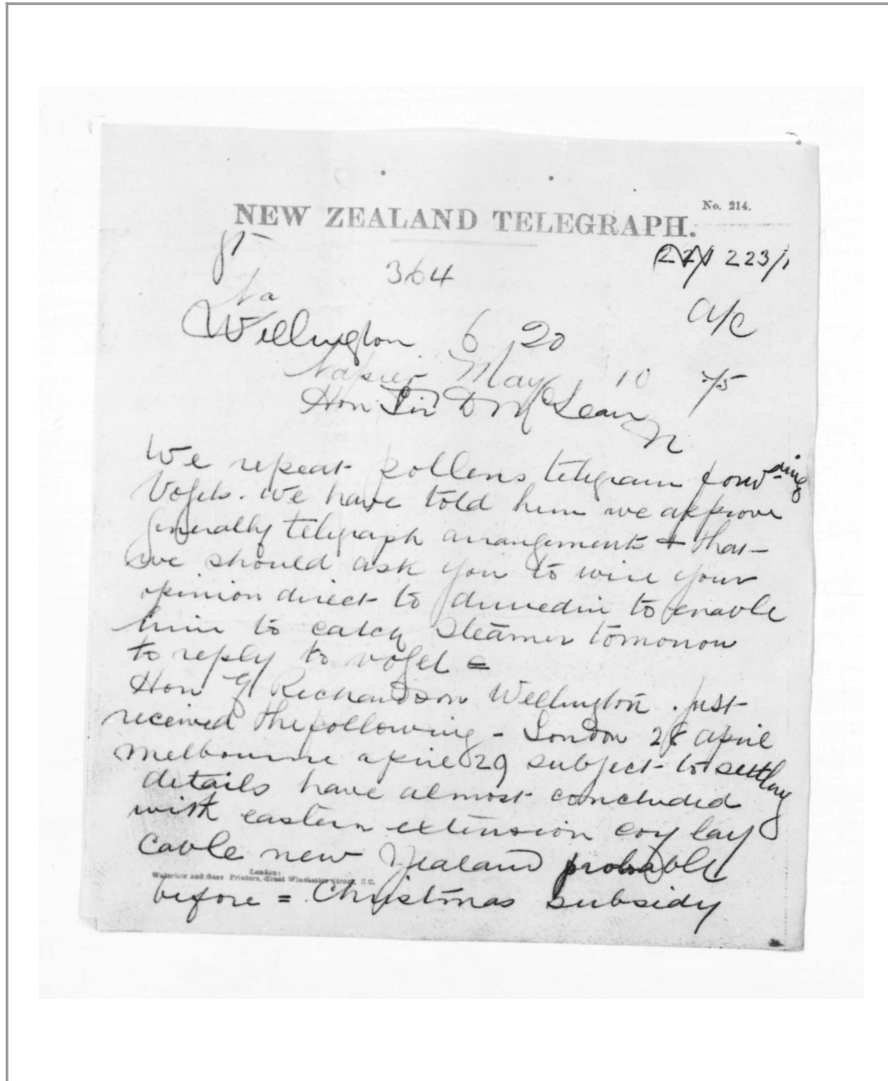 No. 214.
NEW ZEALAND TELEGRAPH.
223/1
364
Na
a/c
Wellington 6 20
Napier May 10 75
Hon Sir D McLean
N
We repeat pollens telegram forwding
Vogels. We have told him we approve
generally telegraph arrangements & that
we should ask you to wire your
opinion direct to dunedin to enable
him to catch steamer tomorrow
to reply to vogel =
Hon G Richardson Wellington. just
received the following - London 28 april
melbourne april 29 subject to settling
details have almost concluded
with eastern extension coy lay
cable new Zealand probable
London:
Waterlow and Sons Printers, Great Winchester Street, E.C.
before = Christmas subsidy